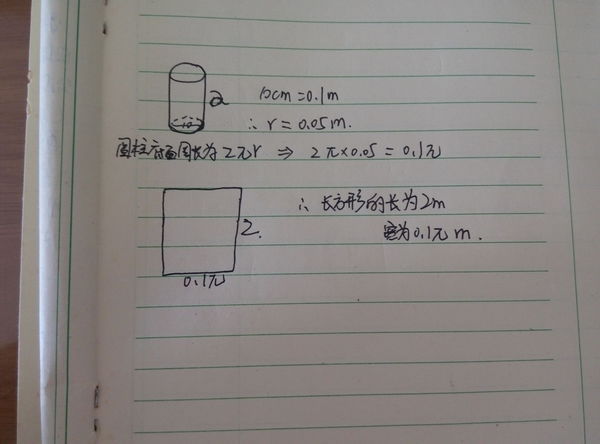 2
10cm = 0.1m
10
∴ r = 0.05m.
圆柱底面周长为2πr ⇒ 2π×0.05 = 0.1π
∴ 长方形的长为2m
2.
宽为0.1π m.
0.1π